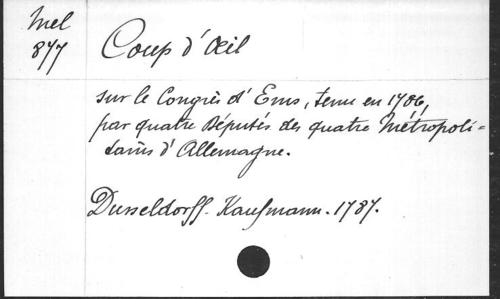 Mel
877
Coup d'Œil
sur le Congrès d'Ems, tenu en 1786,
par quatre Députés des quatre Métropoli=
tains d'Allemagne.
Dusseldorff. Kaufmann. 1787.